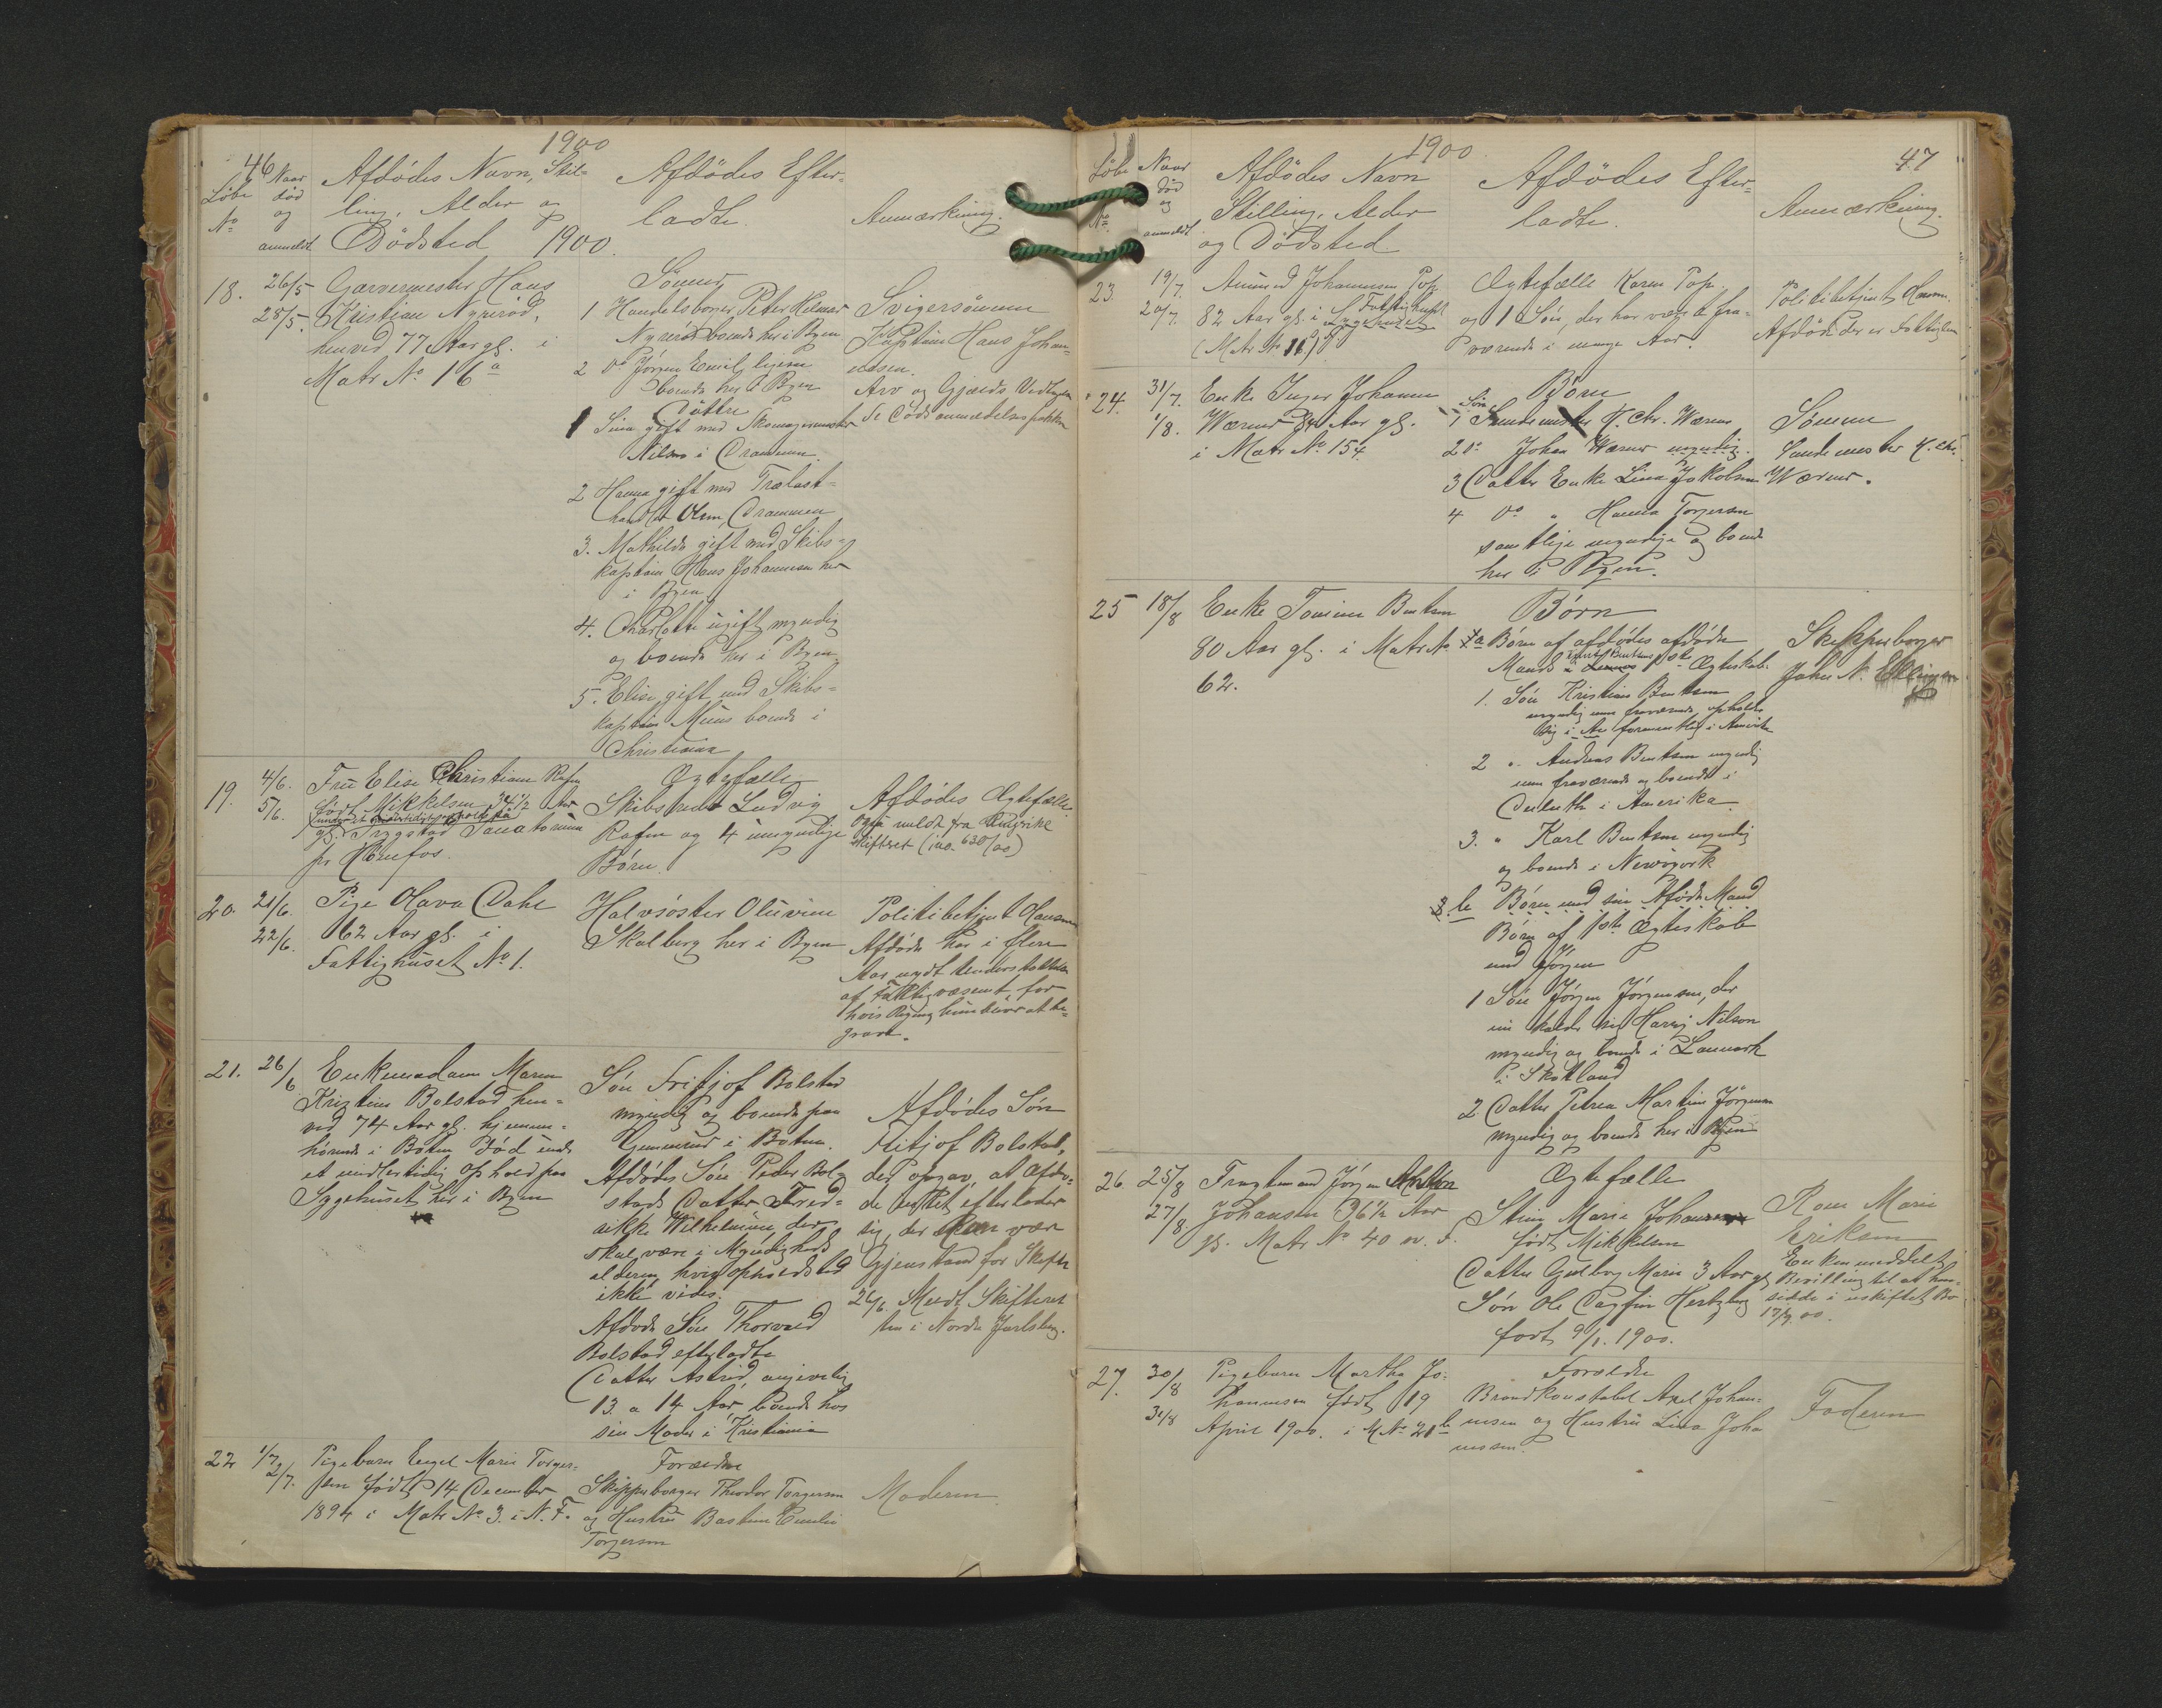 46
1900
Løbe No
Naar død og anmeldt
Afdødes Navn, Stil-
ling, Alder og
Dødsted 1900.
Afdødes Efter-
ladte.
Anmærkning.
18.
26/5
28/5.
Garvermester Hans
Kristian Nyrerød,
henved 77 Aar gl. i
Matr No 16a
Sønner
1 Handelsborger Peter Helmer
Nyrerød boende her i Byen
2 Do Jørgen Emil, ligesaa
boende her i Byen
Døttre
1 Sina gift med Skomagermester
Nilsen i Drammen.
2 Hanna gift med Trælast-
handler Olsen, Drammen
3. Mathilde gift med Skibs-
kaptein Hans Johannesen her
i Byen
4. Charlotte ugift myndig
og boende her i Byen
5. Elise, gift med Skibs-
kaptein Muus boende i
Christiania
Svigersønnen
Kaptein Hans Johan-
nesen.
Arv og Gjælds Vedtagelse
se Dødsanmeldelsesprotokol
19.
4/6.
5/6.
Fru Elise Christiane Rafen
født Mikkelsen 34 1/2 Aar
under et midlertidigt ophold paa
gl. Trygstad Sanatorium
pr Hønefos.
Ægtefælle
Skibsreder Ludvig
Rafen og 4 umyndige
Børn.
Afdødes Ægtefælle.
Ogsaa meldt fra Ringerike
skifteret (ino. 630/00)
20.
21/6.
22/6.
Pige Olava Dahl
62 Aar gl. i
Fattighuset No 1.
Halvsøster Oluvine
Skalberg her i Byen
Politibetjent Hansen
Afdøde har i flere
Aar nydt Understøttelse
af Fattigvæsenet, for
hvis Regning hun bliver at be-
grave.
21.
26/6
Enkemadam Maren
Kristine Bolstad hen-
ved 74 Aar gl. hjemme-
hørende i Botne. Død under
et midlertidig Ophold paa
Sygehuset her i Byen
Søn Fritjof Bolstad
myndig og boende paa
Gunnerud i Botne.
Afdødes Søn Peder Bol-
stads Datter Fred-
rikke Wilhelmine, der
skal være i Myndigheds
alderen, hvis Opholdssted
ikke vides.
Afdøde Søn Thorvald
Bolstad efterladte
Datter Astrid, angivelig
13 a 14 Aar boende hos
sin Moder i Kristiania
Afdødes Søn
Fritjof Bolstad,
der opgav, at Afdø-
de intet efterlader
sig, der kan være
Gjenstand for Skifte
26/6. Meldt Skifteret
ten i Nordre Jarlsberg.
22
1/7
2/7.
Pigebarn Engel Marie Torger-
sen født 14 December
1894 i Matr No 3. i N. F.
Forældre
Skipperborger Theodor Torgersen
og Hustru Bastine Emilie
Torgersen
Moderen.
47
1900
Løbe No.
Naar død og anmeldt
Afdødes Navn
Stilling, Alder
og Dødsted
Afdødes Efter-
ladte.
Anmærkning.
23.
19/7.
20/7.
Amund Johannesen Pop.
82 Aar gl. i Fattighuset
Sygehuset
(Matr No 16.)
Ægtefælle Karen Pop.
og 1 Søn, der har været fra-
værende i mange Aar.
Politibetjent Hansen.
Afdøde der er Fattiglem
24.
31/7.
1/8.
Enke Inger Johanne
Wærner 84 Aar gl.
i Matr No 154
Børn
Søn
1 Sundemester H. Chr. Wærner
2 Do Johan Wærner myndig.
3 Datter Enke Lina Jakobsen
4 Do " Hanna Torjersen
samtlige myndige og boende
her i Byen.
Sønnen
Sundemester H. Chr.
Wærner.
25
18/8
Enke Tomine Bentsen
80 Aar gl. i Matr No
62.
Børn
a Børn af afdødes afdøde
Mands 1ste Ægteskab.
1. Søn Kristian Bentsen
myndig men fraværende opholder
sig i formentlig i Amerika
2 " Andreas Bentsen myndig
men fraværende og boende i
Duluth i Amerika.
3. " Karl Bentsen myndig
og boende i Newyork
b Børn med sin Afdøde Mand
Børn af 1ste Ægteskab
med Jørgen
1 Søn Jørgen Jørgensen, der
nu kalder sig Harry Nilson
myndig og boende i Lanark
i Skotland
2 Datter Petrea Martine Jørgensen
myndig og boende her i Byen
Skipperborger
Johan N. Ellingsen
26
25/8
27/8
Fragtemand Jørgen Anton
Johansen 36 1/2 Aar
gl. Matr No 40 N. F.
Ægtefælle
Stina Marie Johansen
født Mikkelsen
Datter Gudborg Marie 3 Aar gl.
Søn Ole Dagfinn Hertzberg
født 9/1. 1900.
Kone Marie
Eriksen
Enken meddelt
Bevilling til at hen-
sidde i uskiftet Bo
17/9.00.
27.
30/8
31/8
Pigebarn Martha Jo-
hannesen født 19
April 1900. i M No 21b
Forældre
Brandkonstabel Axel Johan-
nesen og Hustru Lina Joha
nesen.
Faderen